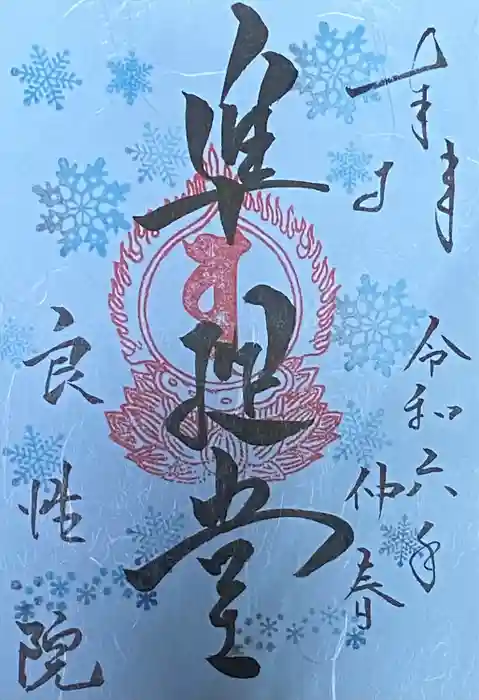 奉拝
令和六年
仲春
準提堂
良性院